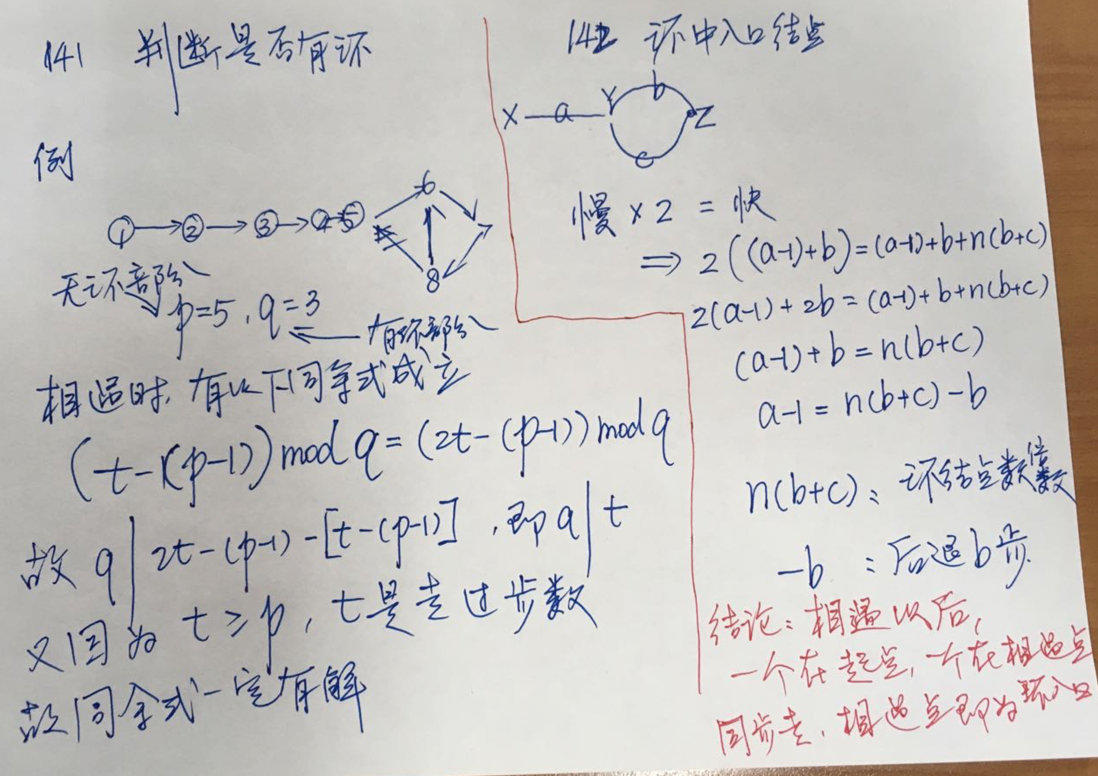 141 判断是否有环
例
① → ② → ③ → ④ → ⑤ 6 7 8
无环部分
p=5, q=3
有环部分
相遇时, 有以下同余式成立
(t-(p-1)) mod q = (2t-(p-1)) mod q
故 q | 2t-(p-1)-[t-(p-1)], 即 q | t
又因为 t≥p, t是走过步数
故同余式一定有解
142 环中入口结点
X a Y b Z c
慢×2 = 快
⇒ 2((a-1)+b)=(a-1)+b+n(b+c)
2(a-1)+2b=(a-1)+b+n(b+c)
(a-1)+b=n(b+c)
a-1=n(b+c)-b
n(b+c): 环结点数倍数
-b : 后退b步
结论: 相遇以后,
一个在起点, 一个在相遇点
同步走, 相遇点即为环入口